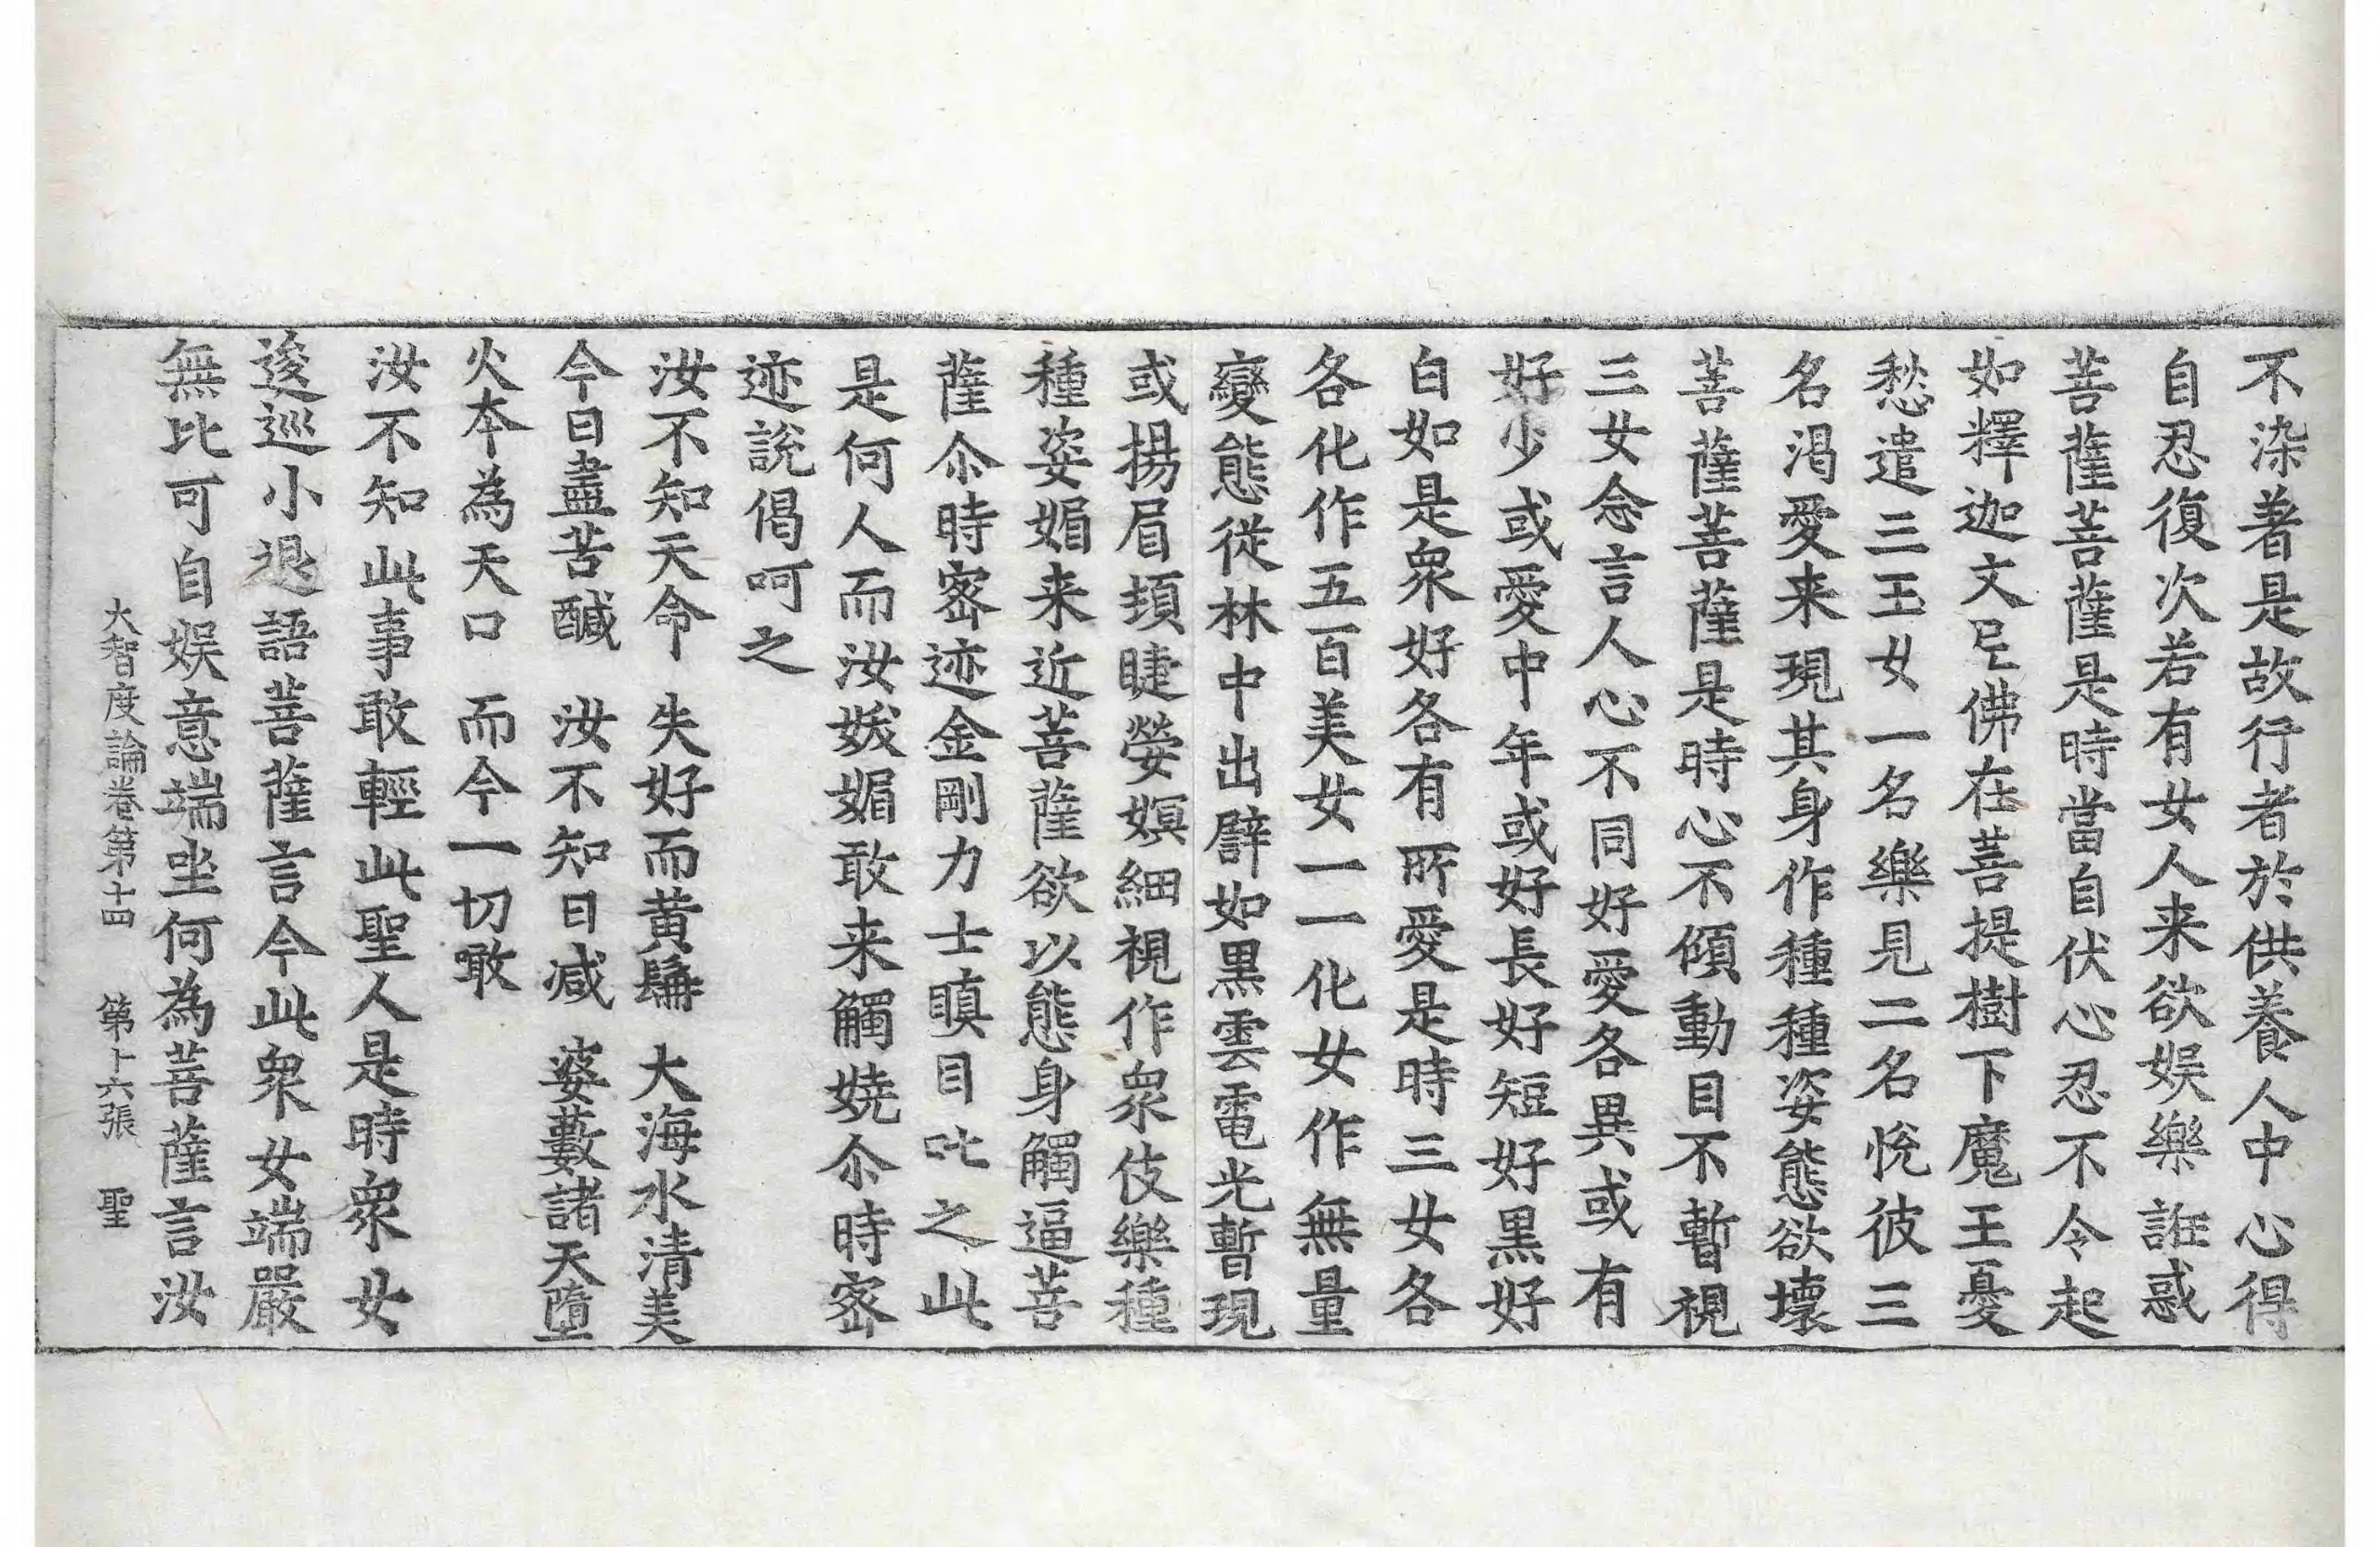 不染著是故行者於供養人中心得
自忍復次若有女人来欲娯樂誑惑
菩薩菩薩是時當自伏心忍不令起
如釋迦文尼佛在菩提樹下魔王憂
愁遣三玉女一名樂見二名悅彼三
名渴愛来現其身作種種姿態欲壞
菩薩菩薩是時心不傾動目不暫視
三女念言人心不同好愛各異或有
好少或愛中年或好長好短好黒好
自如是衆好各有所愛是時三女各
各化作五百美女一一化女作無量
變態從林中出譬如黒雲電光暫現
或揚眉頊睫嫈嫇細視作衆伎樂種
種姿媚来近菩薩欲以態身觸逼菩
薩尒時密迹金剛力士瞋目叱之此
是何人而汝妖媚敢来觸嬈尒時密
迹說偈呵之
汝不知天命　失好而黄髯　大海水清美
今日盡苦醎　汝不知日減　婆藪諸天墮
火本為天口　而今一切噉
汝不知此事敢輕此聖人是時衆女
逡巡小退語菩薩言今此衆女端嚴
無比可自娯意端坐何為菩薩言汝
大智度論卷第十四　第十六張　聖